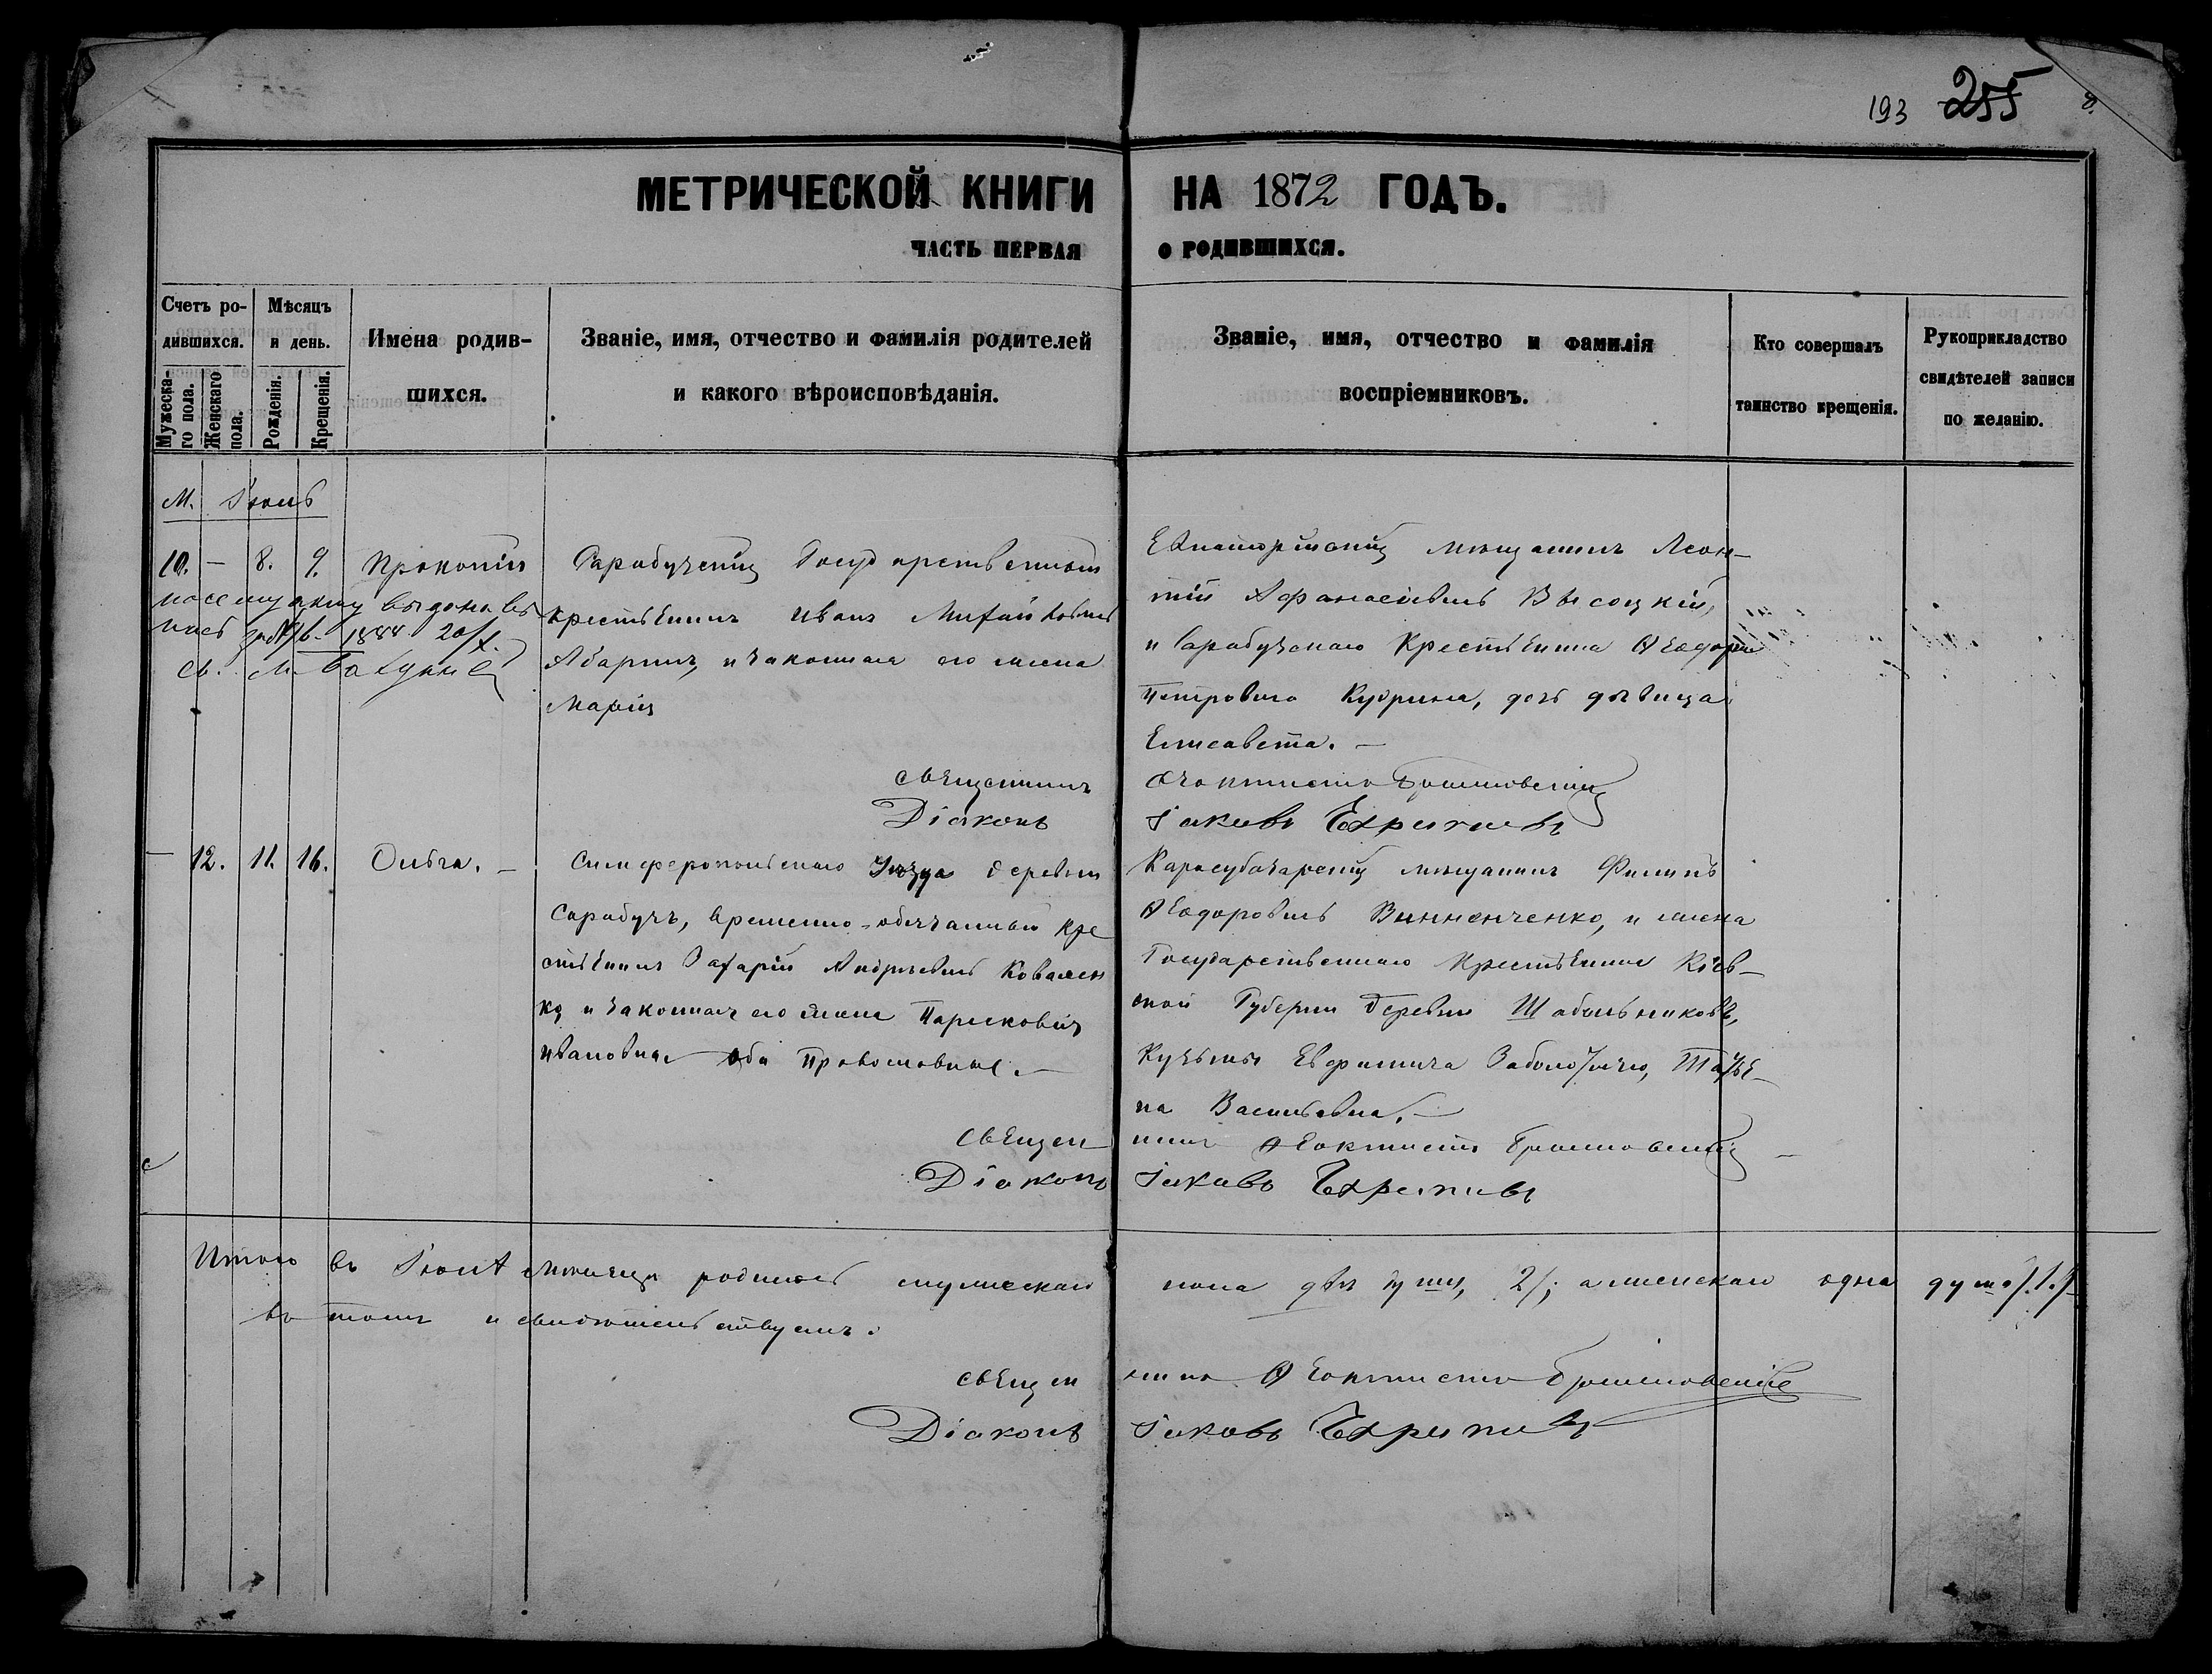 193 255
МЕТРИЧЕСКОЙ КНИГИ НА 1872 ГОДЪ.
ЧАСТЬ ПЕРВАЯ О РОДИВШИХСЯ.
Счетъ родившихся.
Мужескаго пола.
Женскаго пола.
Мѣсяцъ и день.
Рожденія.
Крещенія.
Имена родившихся.
Званіе, имя, отчество и фамилія родителей
и какого вѣроисповѣданія.
Званіе, имя, отчество и фамилія
воспріемниковъ.
Кто совершалъ
таинство крещенія.
Рукоприкладство
свидѣтелей записи
по желанію.
М. Іюль
10. — 8. 9. Прокопій
Сарабузскій Государственный
крестьянинъ Иванъ Михайловичъ
и законная его жена
Марія
Евпаторійскій мѣщанинъ Леон-
тій Афанасіевичъ Высоцкій,
и Сарабузскаго Крестьянина Ѳеодора
Петровича Кудрина, дочь дѣвица
Елисавета. —
Священникъ Ѳеоктистъ
Діаконъ Іаковъ
— 12. 11. 16. Ольга. —
Симферопольскаго Уѣзда деревни
Сарабузъ, временно-обязанный кре
стьянинъ Захарій Андреевичъ Ковален
ко, и законная его жена Парасковія
Ивановна оба Православные. —
Карасубазарскій мѣщанинъ Филипъ
Ѳеодоровичъ Винниченко, и жена
Государственнаго Крестьянина Кіев-
ской Губерніи деревни
Кузьмы Татья-
на Васильевна. —
Священ никъ Ѳеоктистъ
Діаконъ Іаковъ
Итого въ Іюлѣ мѣсяцѣ родилось мужескаго пола двѣ души, 2/; а женскаго одна душа /1./
въ томъ и свидѣтельствуемъ.
Священ никъ Ѳеоктистъ
Діаконъ Іаковъ